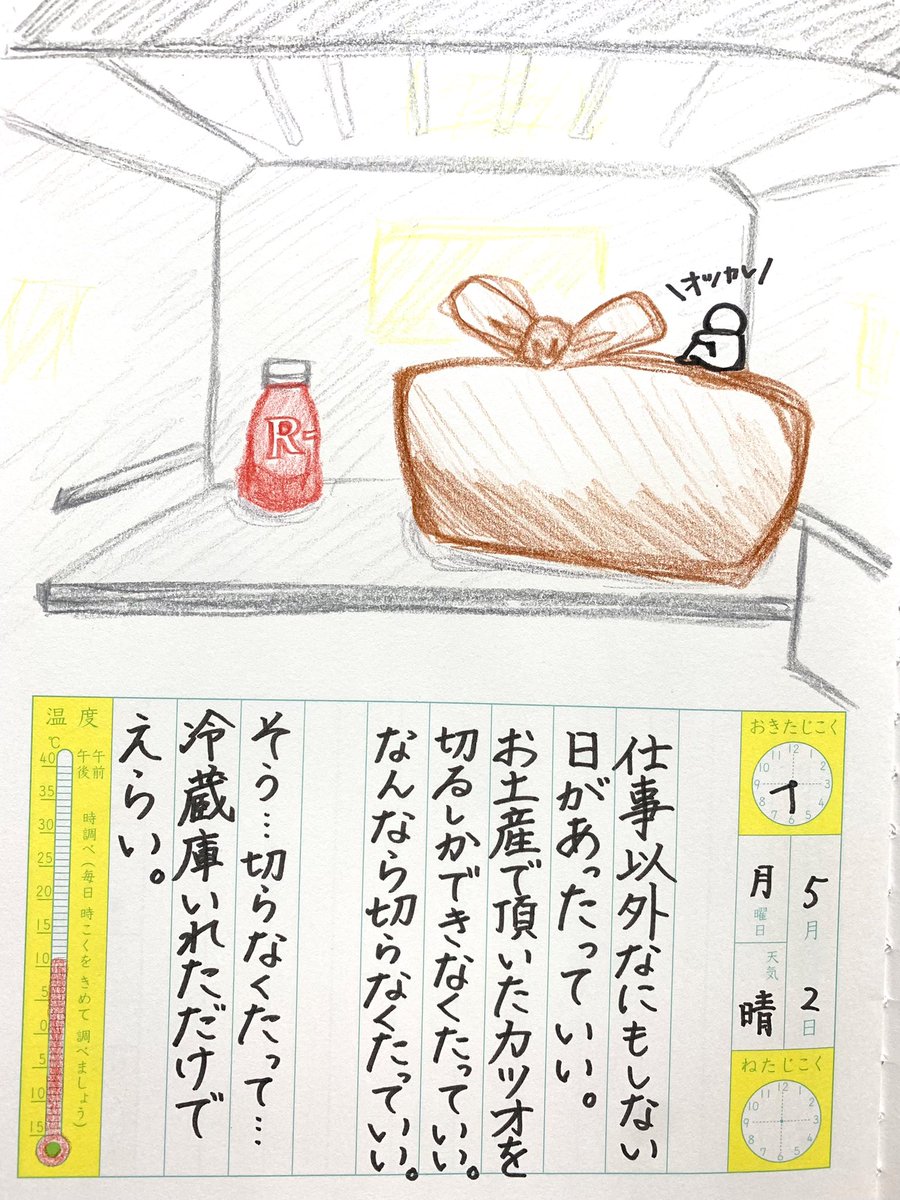 \オツカレ/
R-
おきたじこく
12 1 2 3 4 5 6 7 8 9 10 11
5月2日
月曜日
天気
晴
ねたじこく
12 1 2 3 4 5 6 7 8 9 10 11
仕事以外なにもしない
日があったっていい。
お土産で頂いたカツオを
切るしかできなくたっていい。
なんなら切らなくたっていい。
そう…切らなくたって…
冷蔵庫いれただけで
えらい。
温度
℃
午前
午後
時調べ(毎日 時こくを きめて 調べましょう)
40
35
30
25
20
15
10
5
0
5
10
15